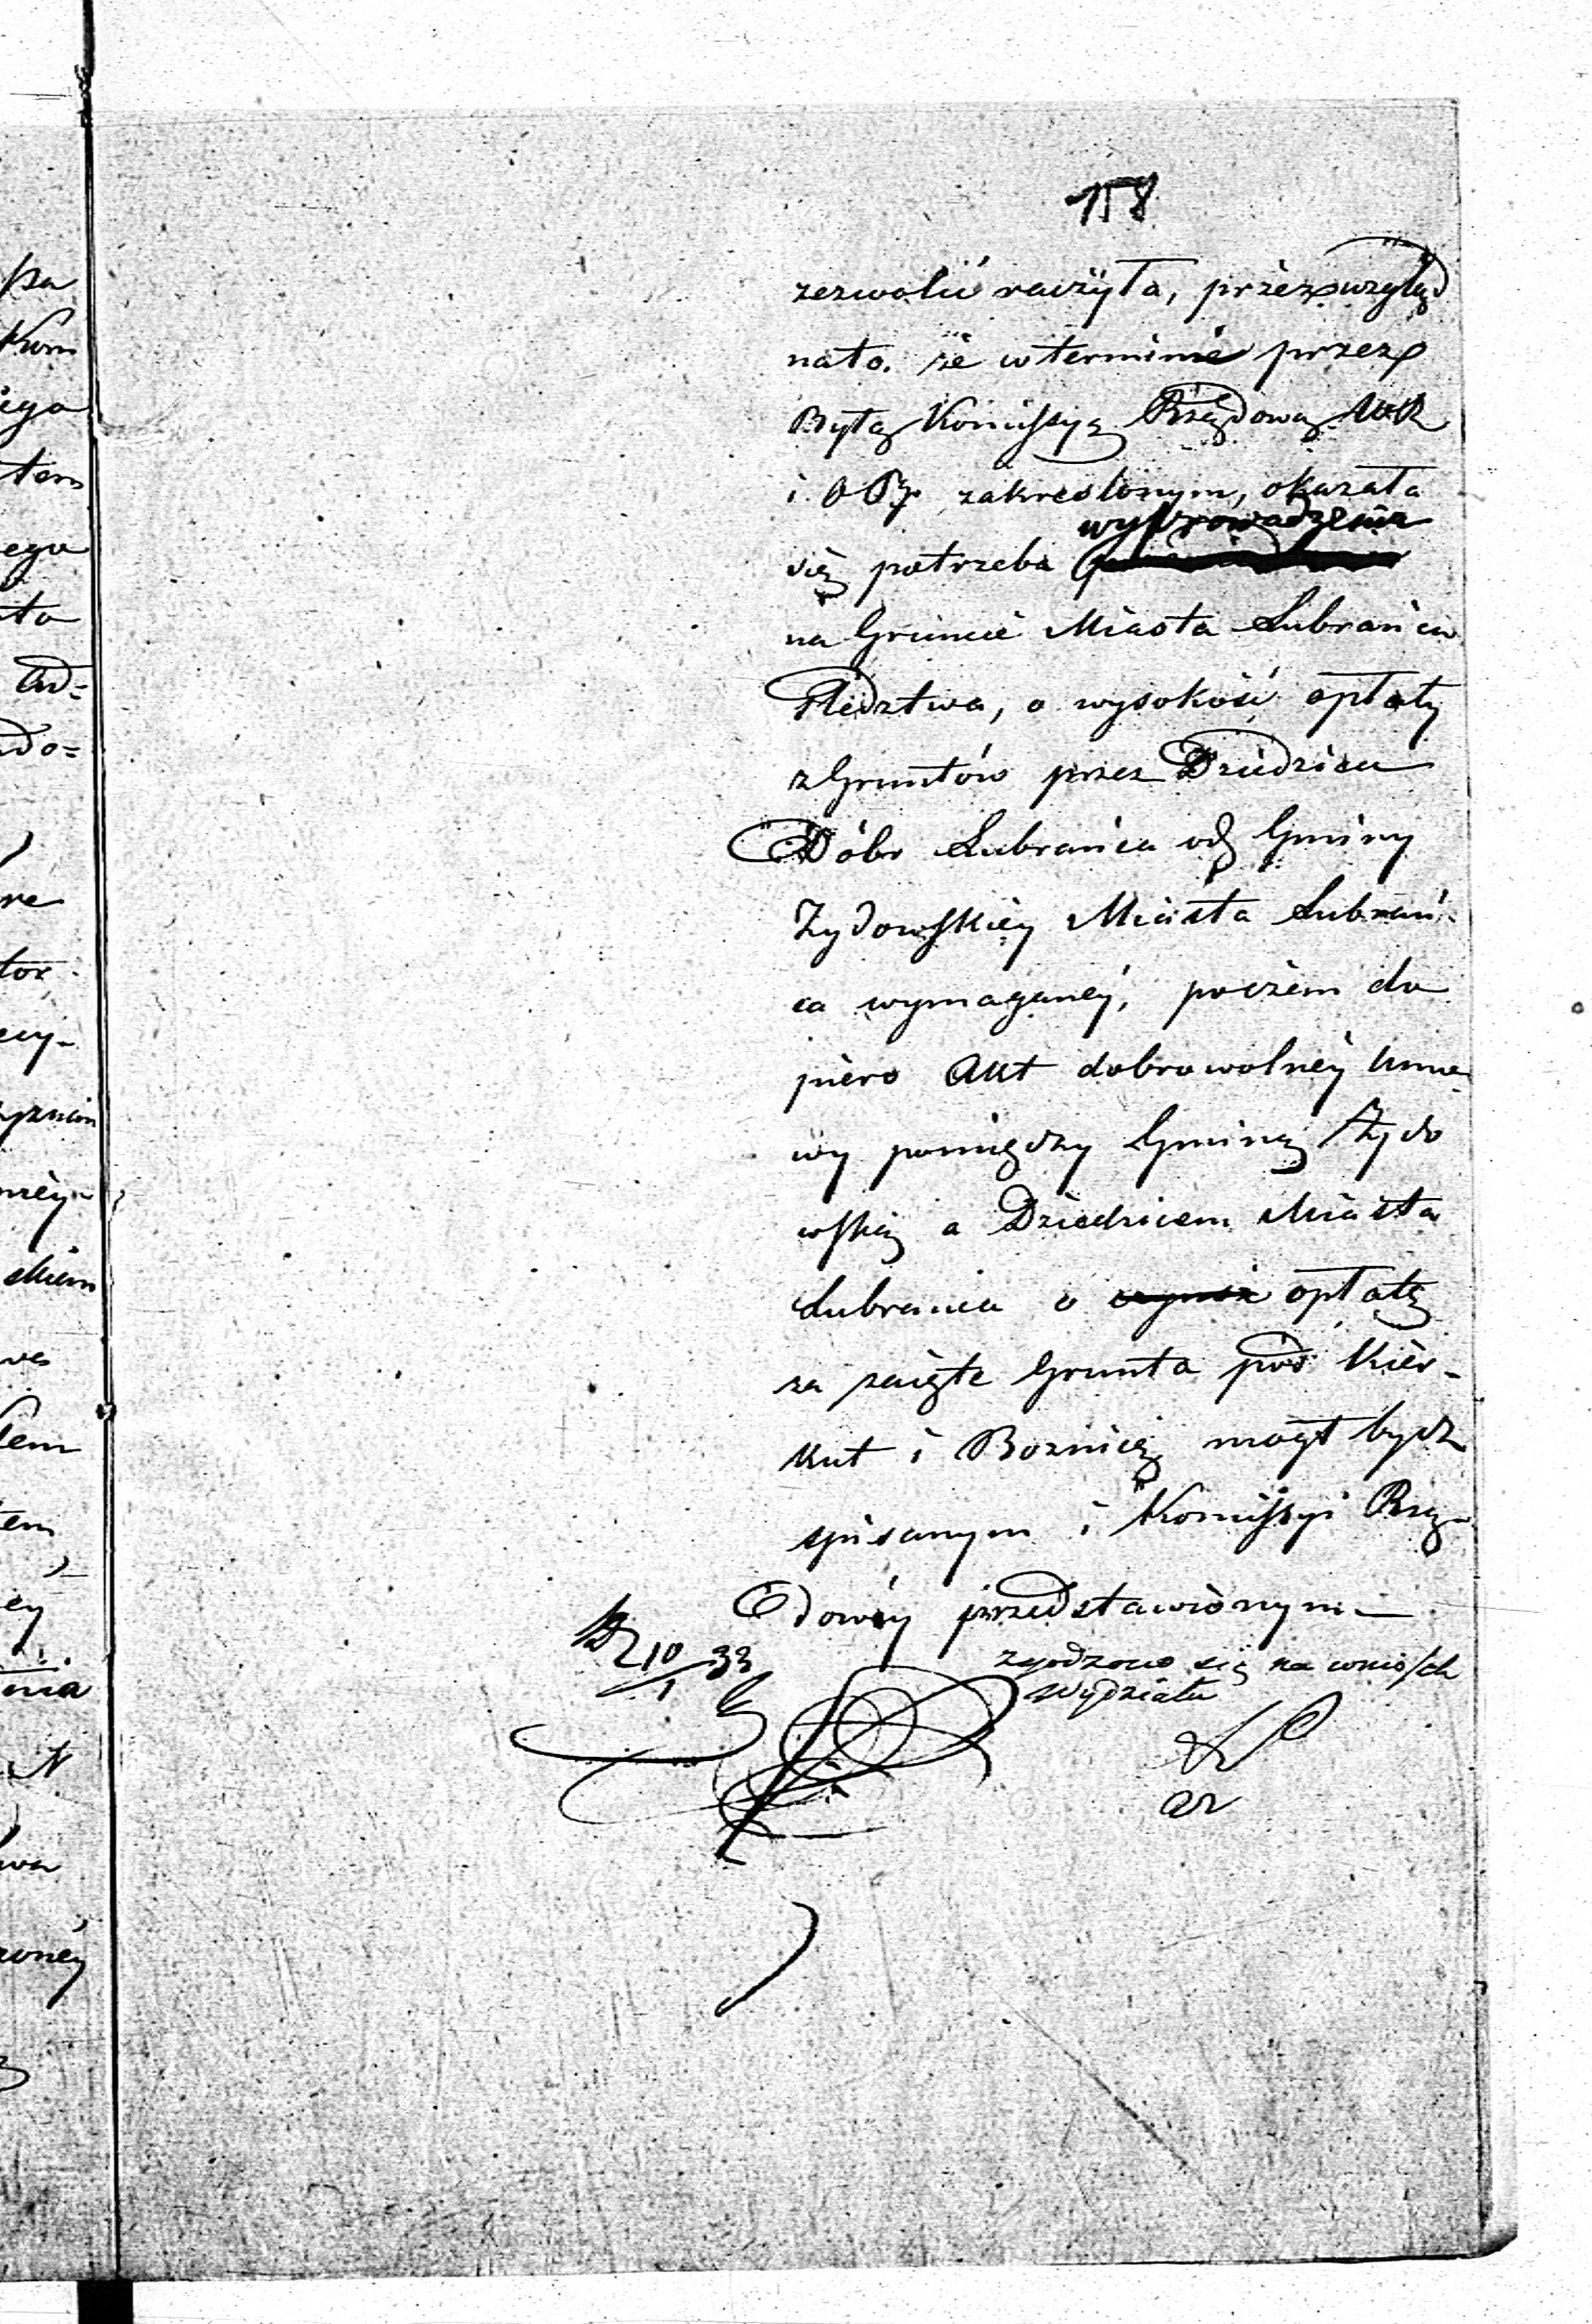 158
zezwolić raczyła, przez wzgląd
na to. że w terminie przez
Byłą Kommissyą Rządową WR
i OP. zakreślonym, okazała
wyprowadzenia
się potrzeba
na Gruncie Miasta Lubrańca
Sledztwa, o wysokość opłaty
z Gruntów przez Dziedzica
Dóbr Lubrańca od Gminy
Zydowskiey Miasta Lubrań-
ca wymaganéy, poczém do
piero Akt dobrowolnéy Umo-
wy pomiędzy Gminą Żydo
wską a Dziedzicem Miasta
Lubrańca o opłatę
za zaięte Grunta pod Kier-
kut i Boznicę mógł bydz
spisanym i Kommissyi Rzą-
dowéy przedstawionym
10/1 33
zgodzono się na wniosek
Wydziału
pa
Kom
iego
tem
ego
to
do=
re
skiem
tem
ey
nia
wa